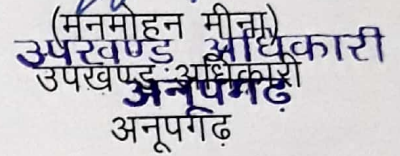 (मनमोहन मीना)
उपखण्ड अधिकारी
उपखण्ड अधिकारी
अनूपगढ़
अनूपगढ़